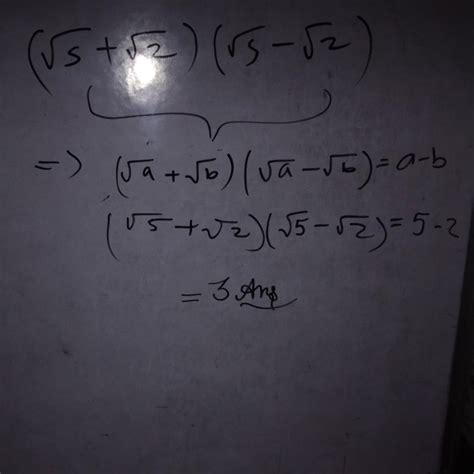 (√5 + √2) (√5 - √2)
=> (√a + √b) (√a - √b) = a-b
(√5 + √2) (√5 - √2) = 5-2
= 3 Ans